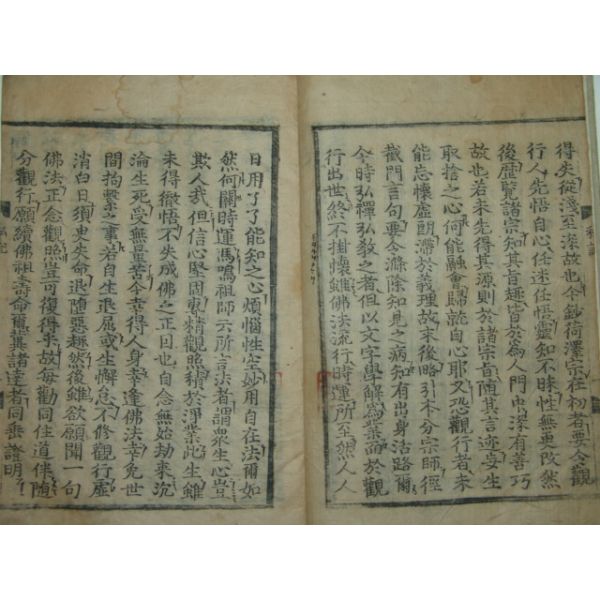 得失從淺至深故也今鈔荷澤宗在初者要令觀
行人先悟自心任迷任悟靈知不昧性無更改然
後歷覽諸宗知其旨趣皆於爲人門中深有善巧
故也若未先得其源則於諸宗旨隨其言迹妄生
取捨之心何能融會歸就自心耶又恐觀行者未
能忘懷虛朗滯於義理故末後略引本分宗師徑
截門言句要令滌除知見之病知有出身活路爾
今時弘釋弘敎之者但以文字學解爲業而於觀
行出世終不掛懷雖佛法流行時運所至然人人
日用了了能知之心煩惱性空妙用自在法爾如
然何關時運馮鳴祖師云所言法者謂衆生心豈
欺人哉但信心堅固專精觀照積於淨業此生雖
未得徹悟不失成佛之正因也自念無始劫來沉
淪生死受無量苦今幸得人身幸逢佛法幸免世
間拘繫之事若自生退屈或生懈怠不修觀行虛
消白日須臾失命退墮惡趣然後雖欲願聞一句
佛法正念觀照豈可復得乎故每勸同住道伴隨
分觀行願續佛祖壽命冀其諸達者同垂證明